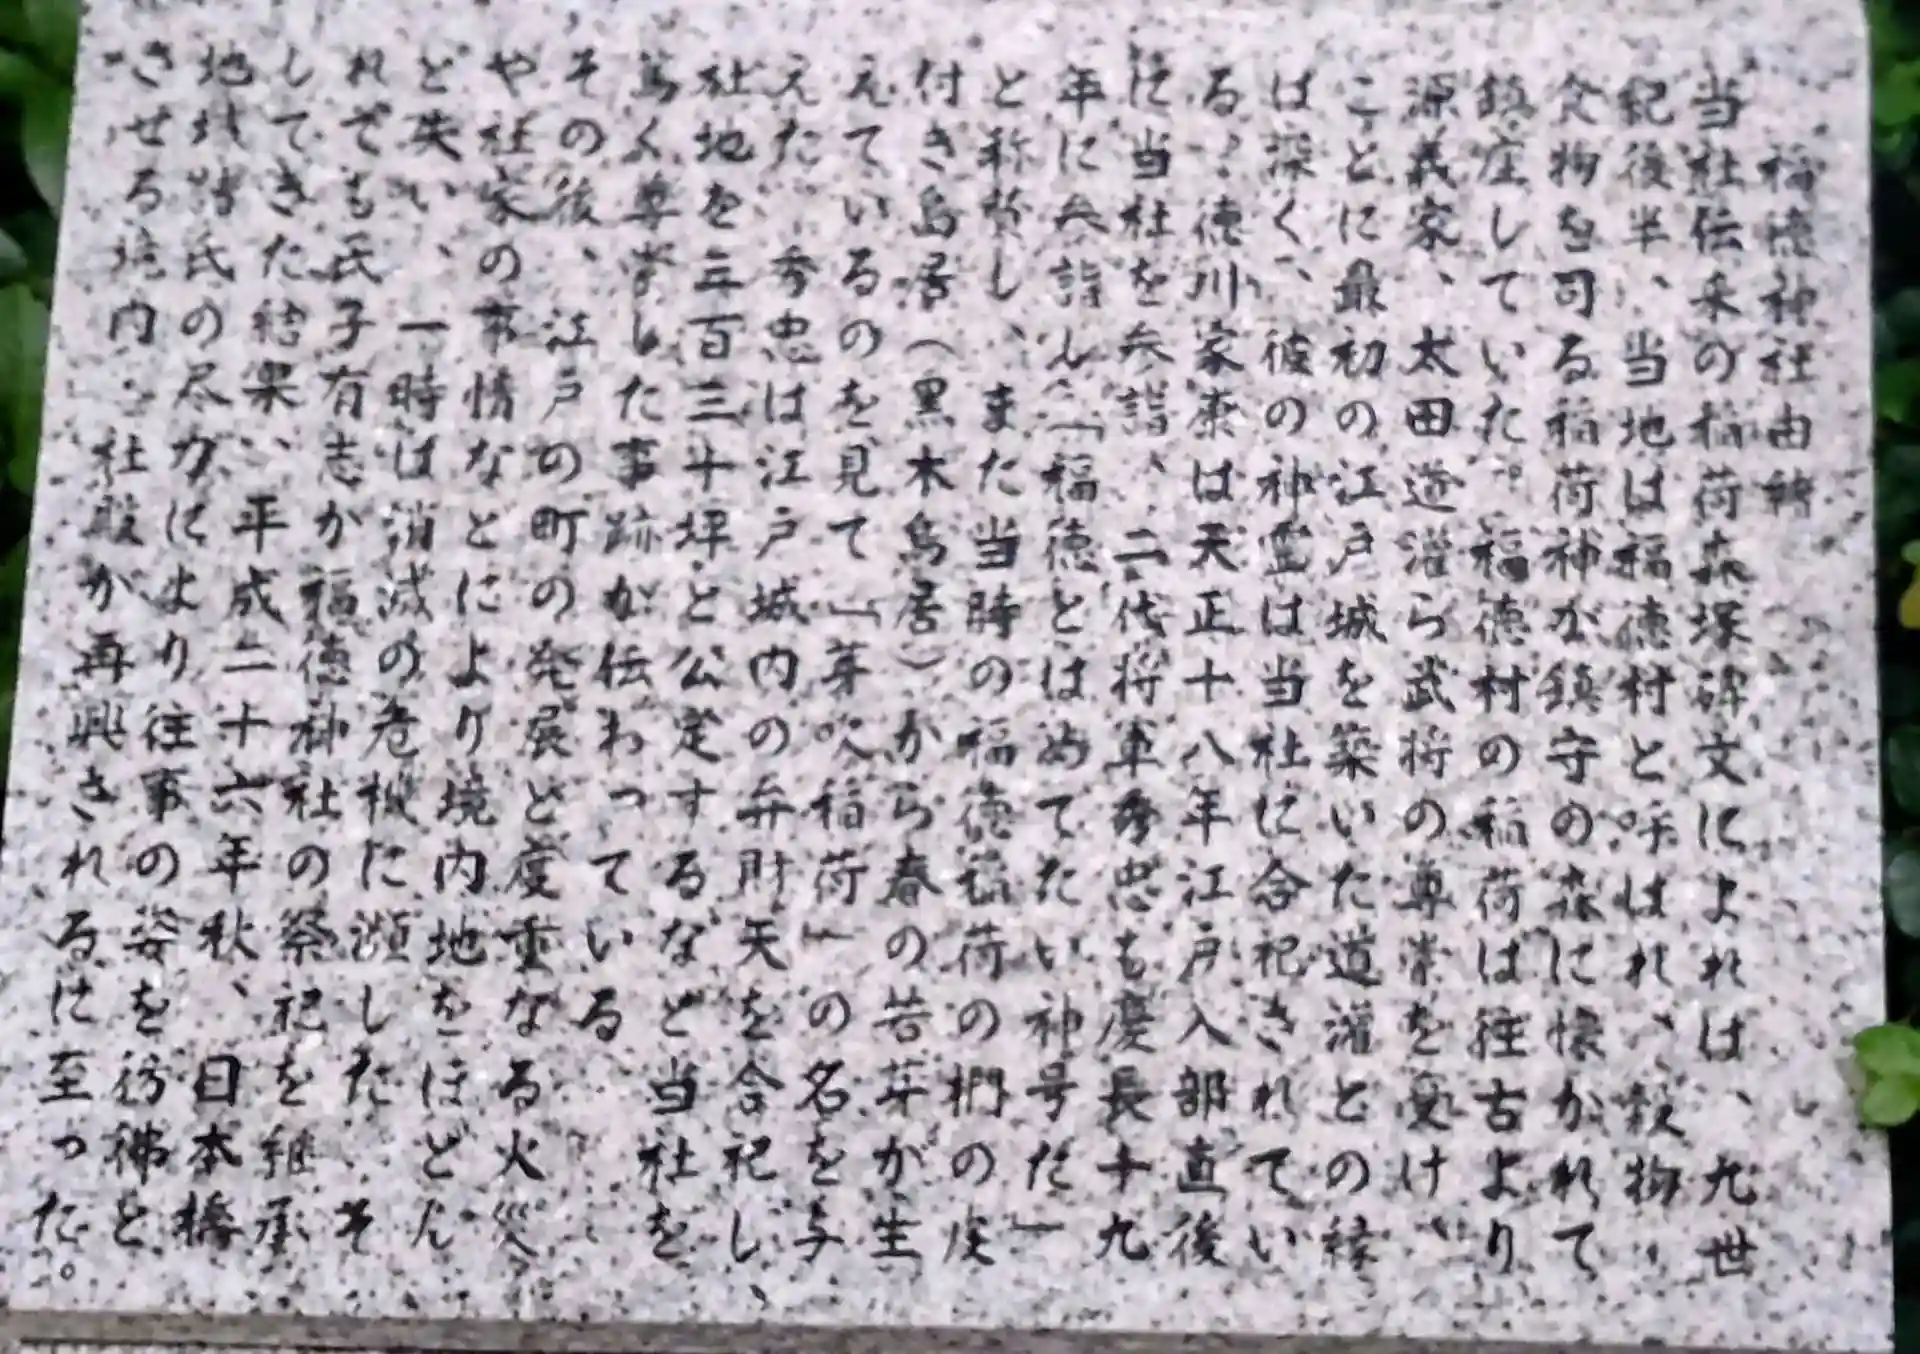 福徳神社由緒
当社伝来の稲荷森塚碑文によれば、九世
紀後半、当地は福徳村と呼ばれ、穀物、
食物を司る稲荷神が鎮守の森に懐かれて
鎮座していた。福徳村の稲荷は往古より
源義家、太田道灌ら武将の尊崇を受け、
ことに最初の江戸城を築いた道灌との縁
は深く、彼の神霊は当社に合祀されてい
る。徳川家康は天正十八年江戸入部直後
に当社を参詣、二代将軍秀忠も慶長十九
年に参詣し、「福徳とはめでたい神号だ」
と称賛し、また当時の福徳稲荷の椚の皮
付き鳥居（黒木鳥居）から春の若芽が生
えているのを見て「芽吹稲荷」の名を与
えた。秀忠は江戸城内の弁財天を合祀し、
社地を三百三十坪と公定するなど当社を
篤く尊崇した事跡が伝わっている。
その後、江戸の町の発展と度重なる火災
や社家の事情などにより境内地をほどん
ど失い、一時は消滅の危機に瀕した。そ
れでも氏子有志が福徳神社の祭祀を継承
してきた結果、平成二十六年秋、日本橋
地域諸氏の尽力により往事の姿を彷彿と
させる境内、社殿が再興されるに至った。